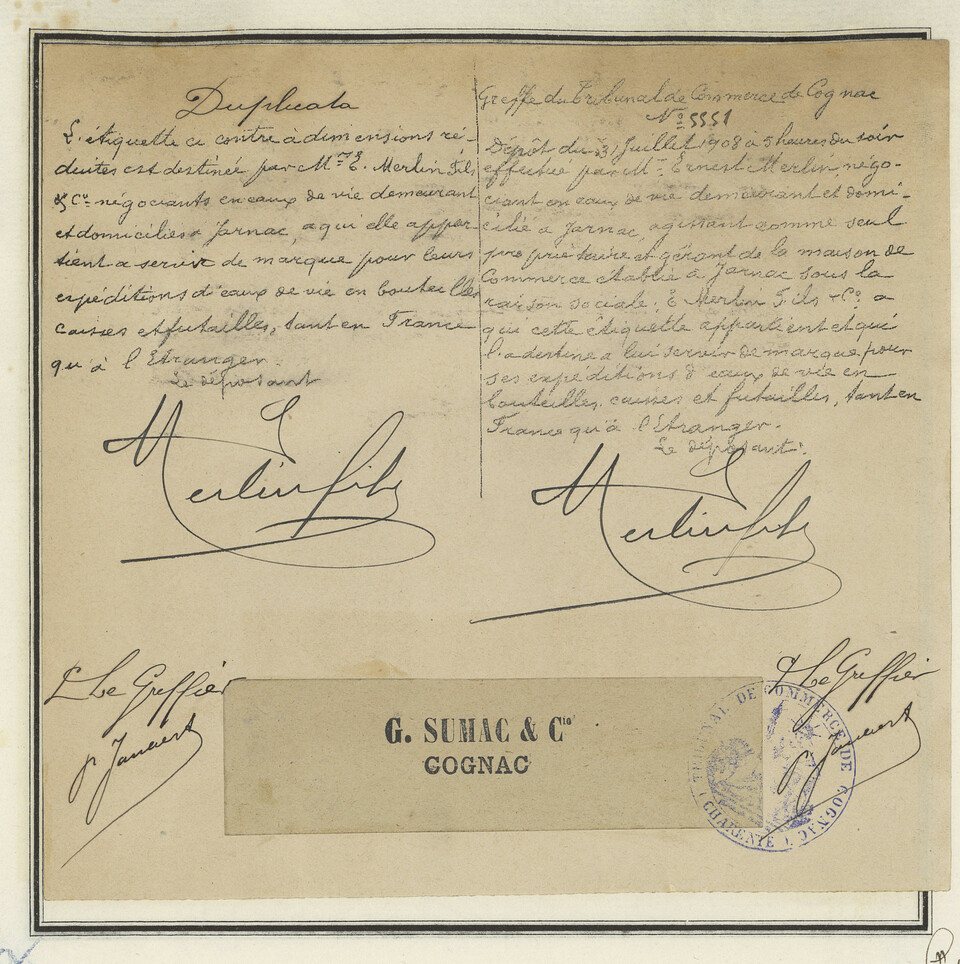 Duplicata
L'étiquette ci contre à dimensions ré-
duites est destinée par Mrs E. Merlin Fils
& Cie négociants en eaux de vie demeurant
et domiciliés à Jarnac, a qui elle appar-
tient a servir de marque pour leurs
expéditions d'eaux de vie en bouteilles
caisses et futailles, tant en France
qu'à l'Etranger.
Le déposant
E Merlin fils
Le Greffier
Greffe du Tribunal de Commerce de Cognac
No 5551
Dépot du 31 Juillet 1908 à 5 heures du soir
effectué par Mr Ernest Merlin, négo-
ciant en eaux de vie demeurant et domi-
cilié a Jarnac, agissant comme seul
propriétaire et gérant de la maison de
Commerce établie à Jarnac sous la
raison sociale: E Merlin Fils & Co. a
qui cette étiquette appartient et qui
l'a destine a lui servir de marque pour
ses expéditions d'eaux de vie en
bouteilles, caisses et futailles, tant en
France qu'à l'Etranger.
Le déposant:
E Merlin fils
Le Greffier
G. SUMAC & Cie
COGNAC
TRIBUNAL DE COMMERCE DE COGNAC
(CHARENTE)